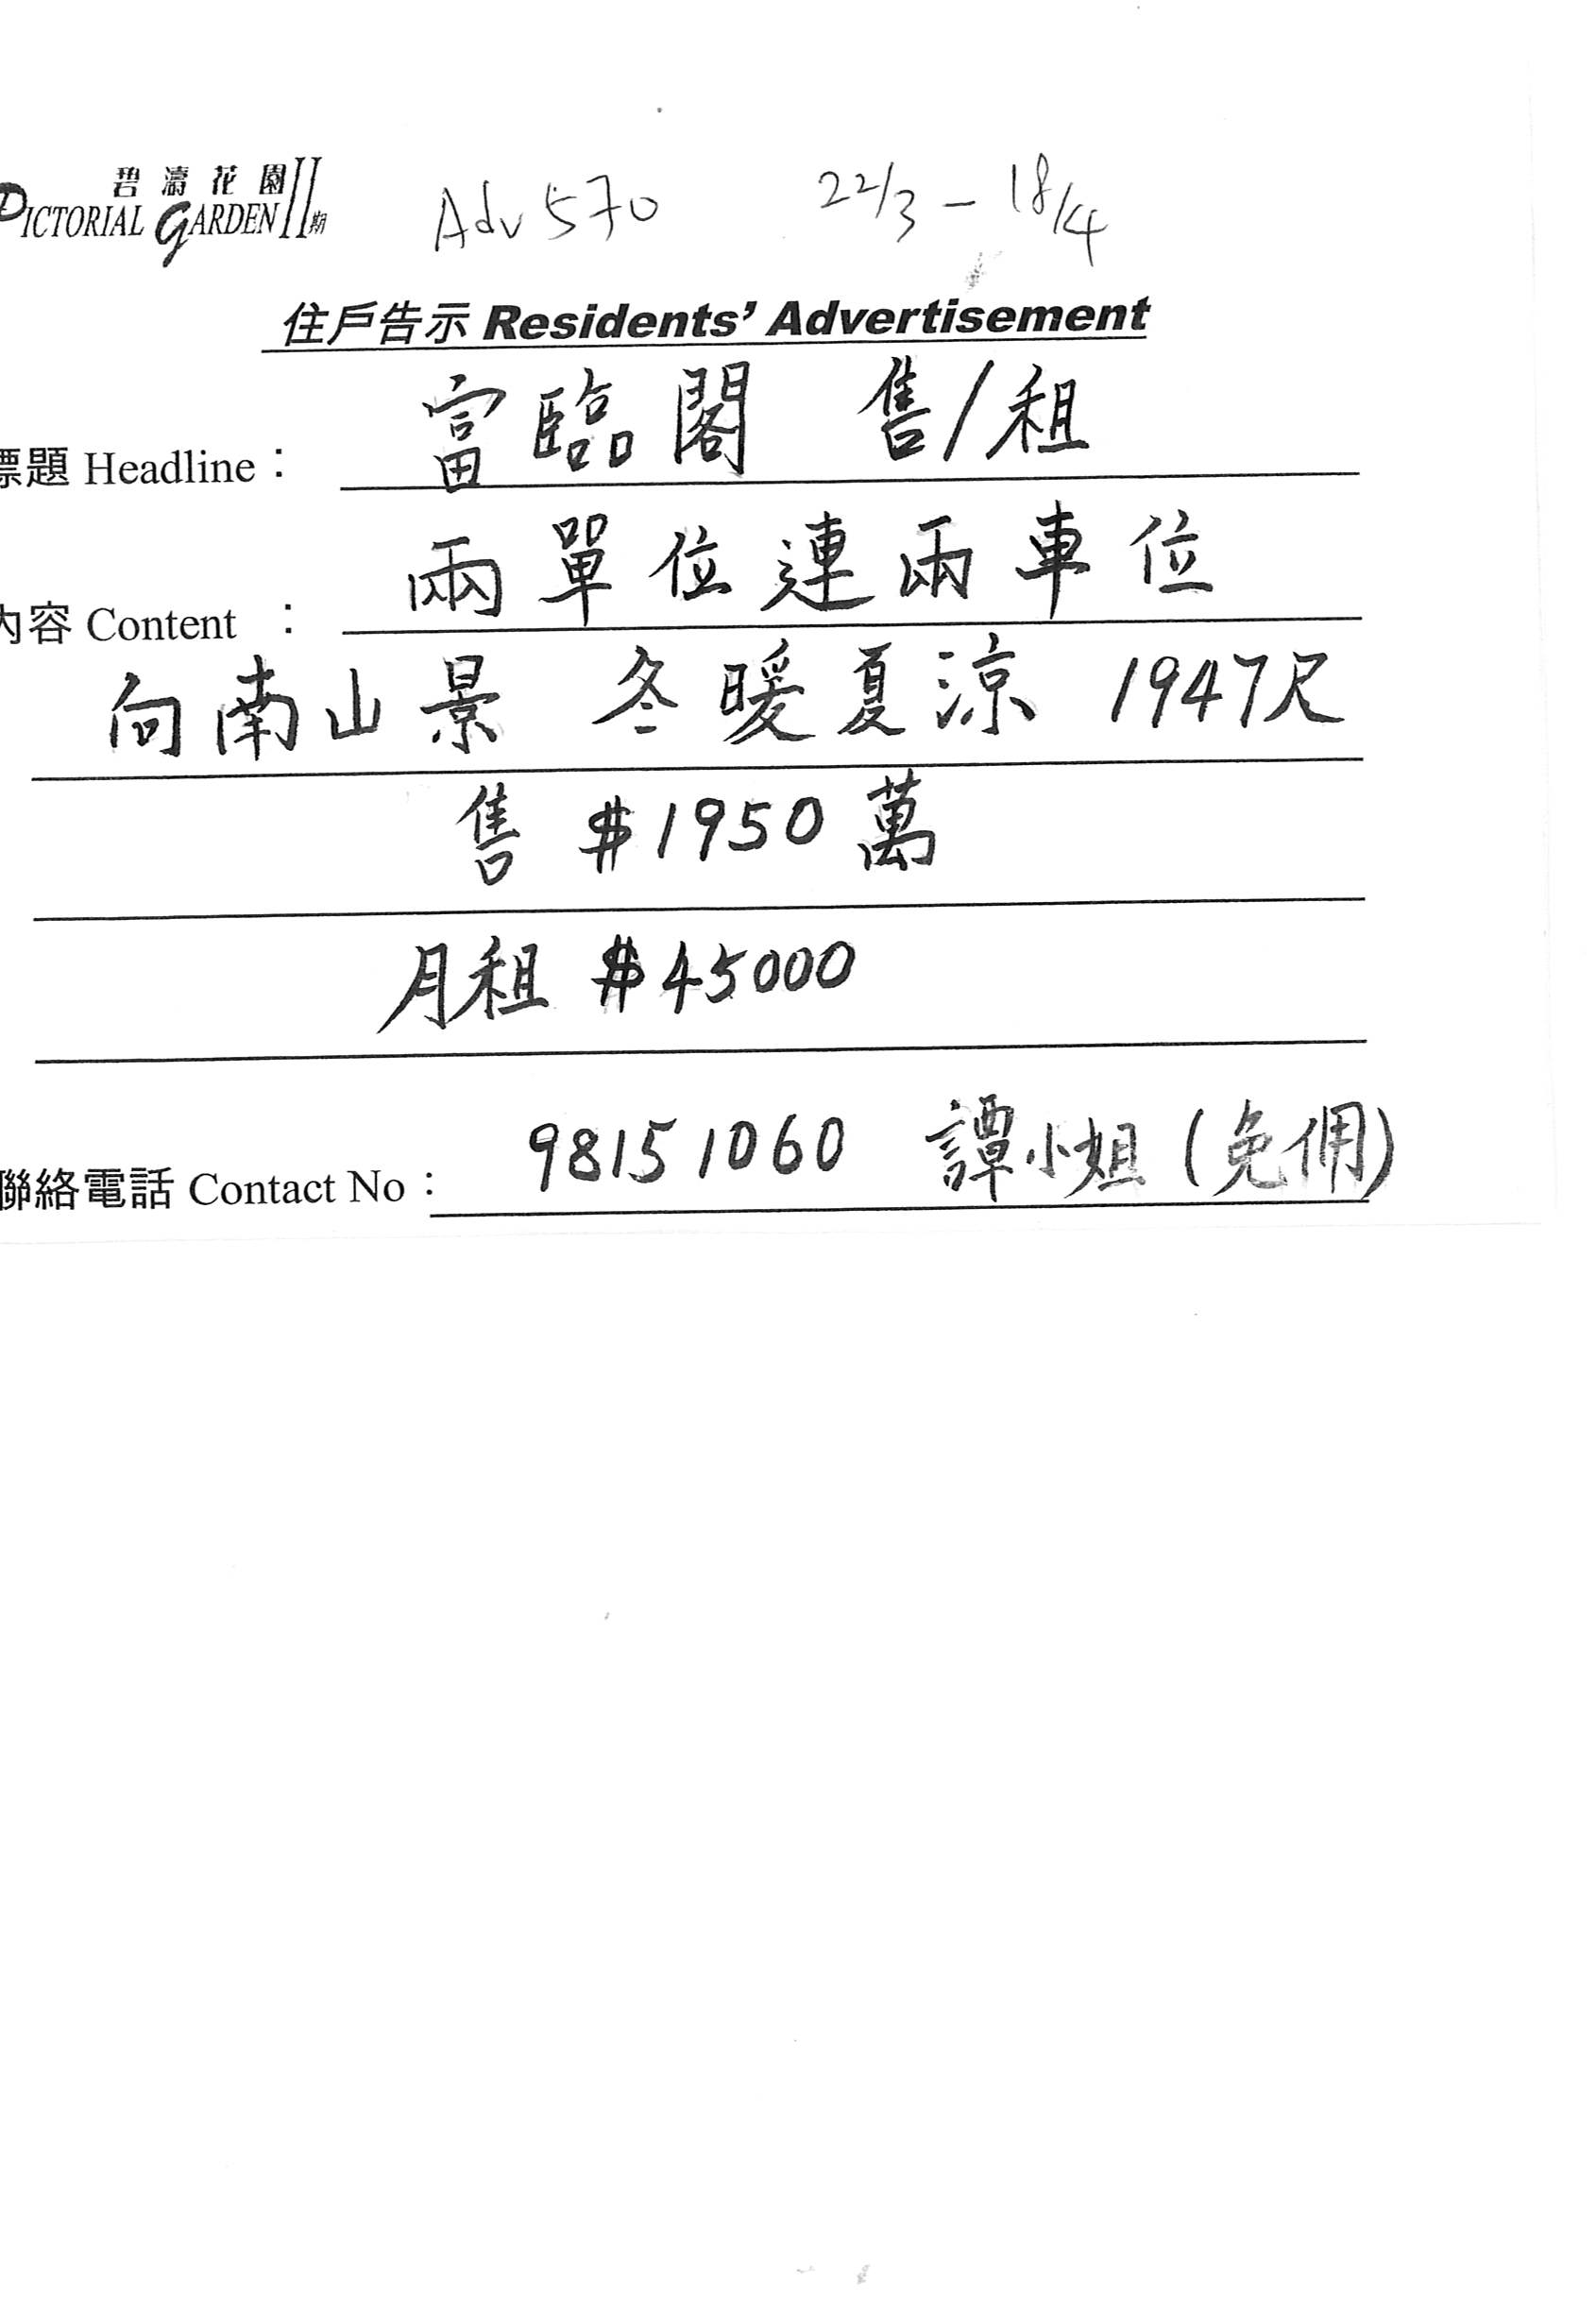 碧濤花園II期
PICTORIAL GARDEN
Adv 570 22/3 - 18/4
住戶告示 Residents' Advertisement
標題 Headline： 富臨閣 售/租
內容 Content ： 兩單位連兩車位
向南山景 冬暖夏涼 1947尺
售 $1950萬
月租 $45000
聯絡電話 Contact No： 98151060 譚小姐(免佣)